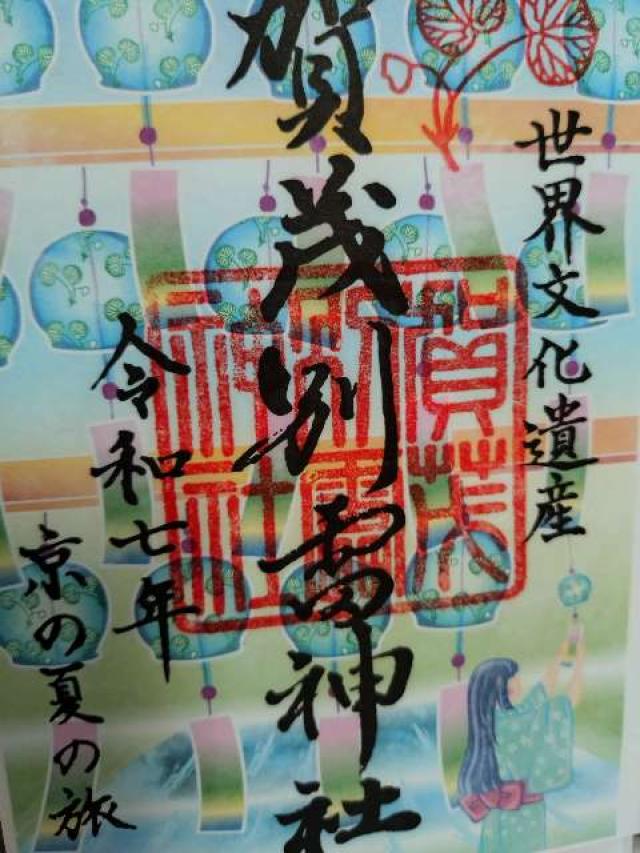 世界文化遺産
賀茂別雷神社
令和七年
京の夏の旅
賀茂
別雷
神社